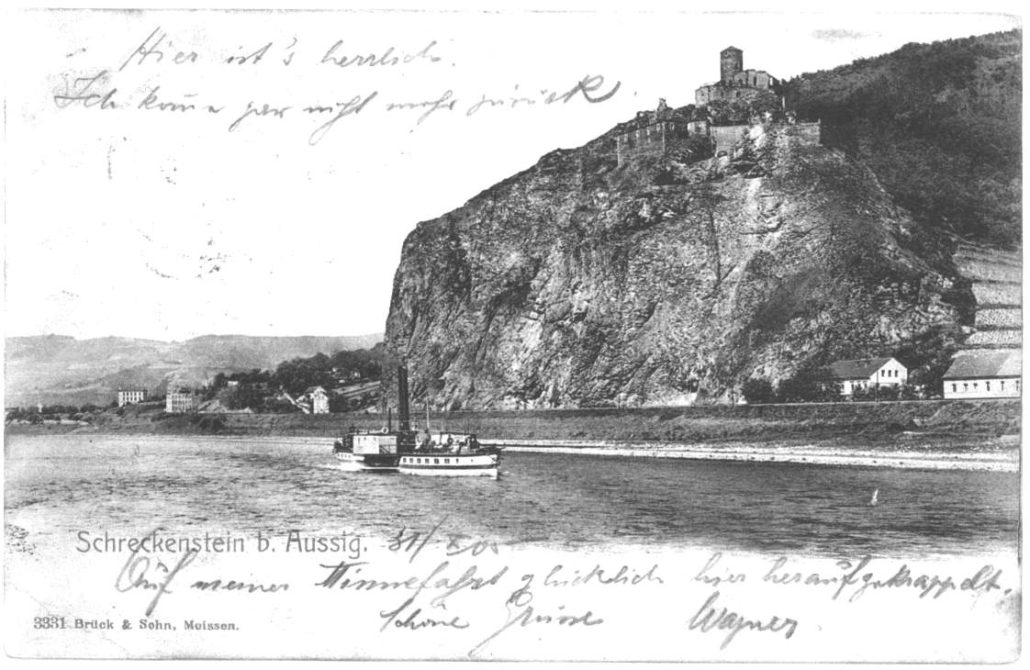 Hier ist's herrlich.
Ich komme gar nicht mehr zurück
Schreckenstein b. Aussig. 31/X 05
Auf meiner Minnefahrt glücklich hier heraufgekrappelt,
Schöne Grüsse Wagner.
3331 Brück & Sohn, Meissen.